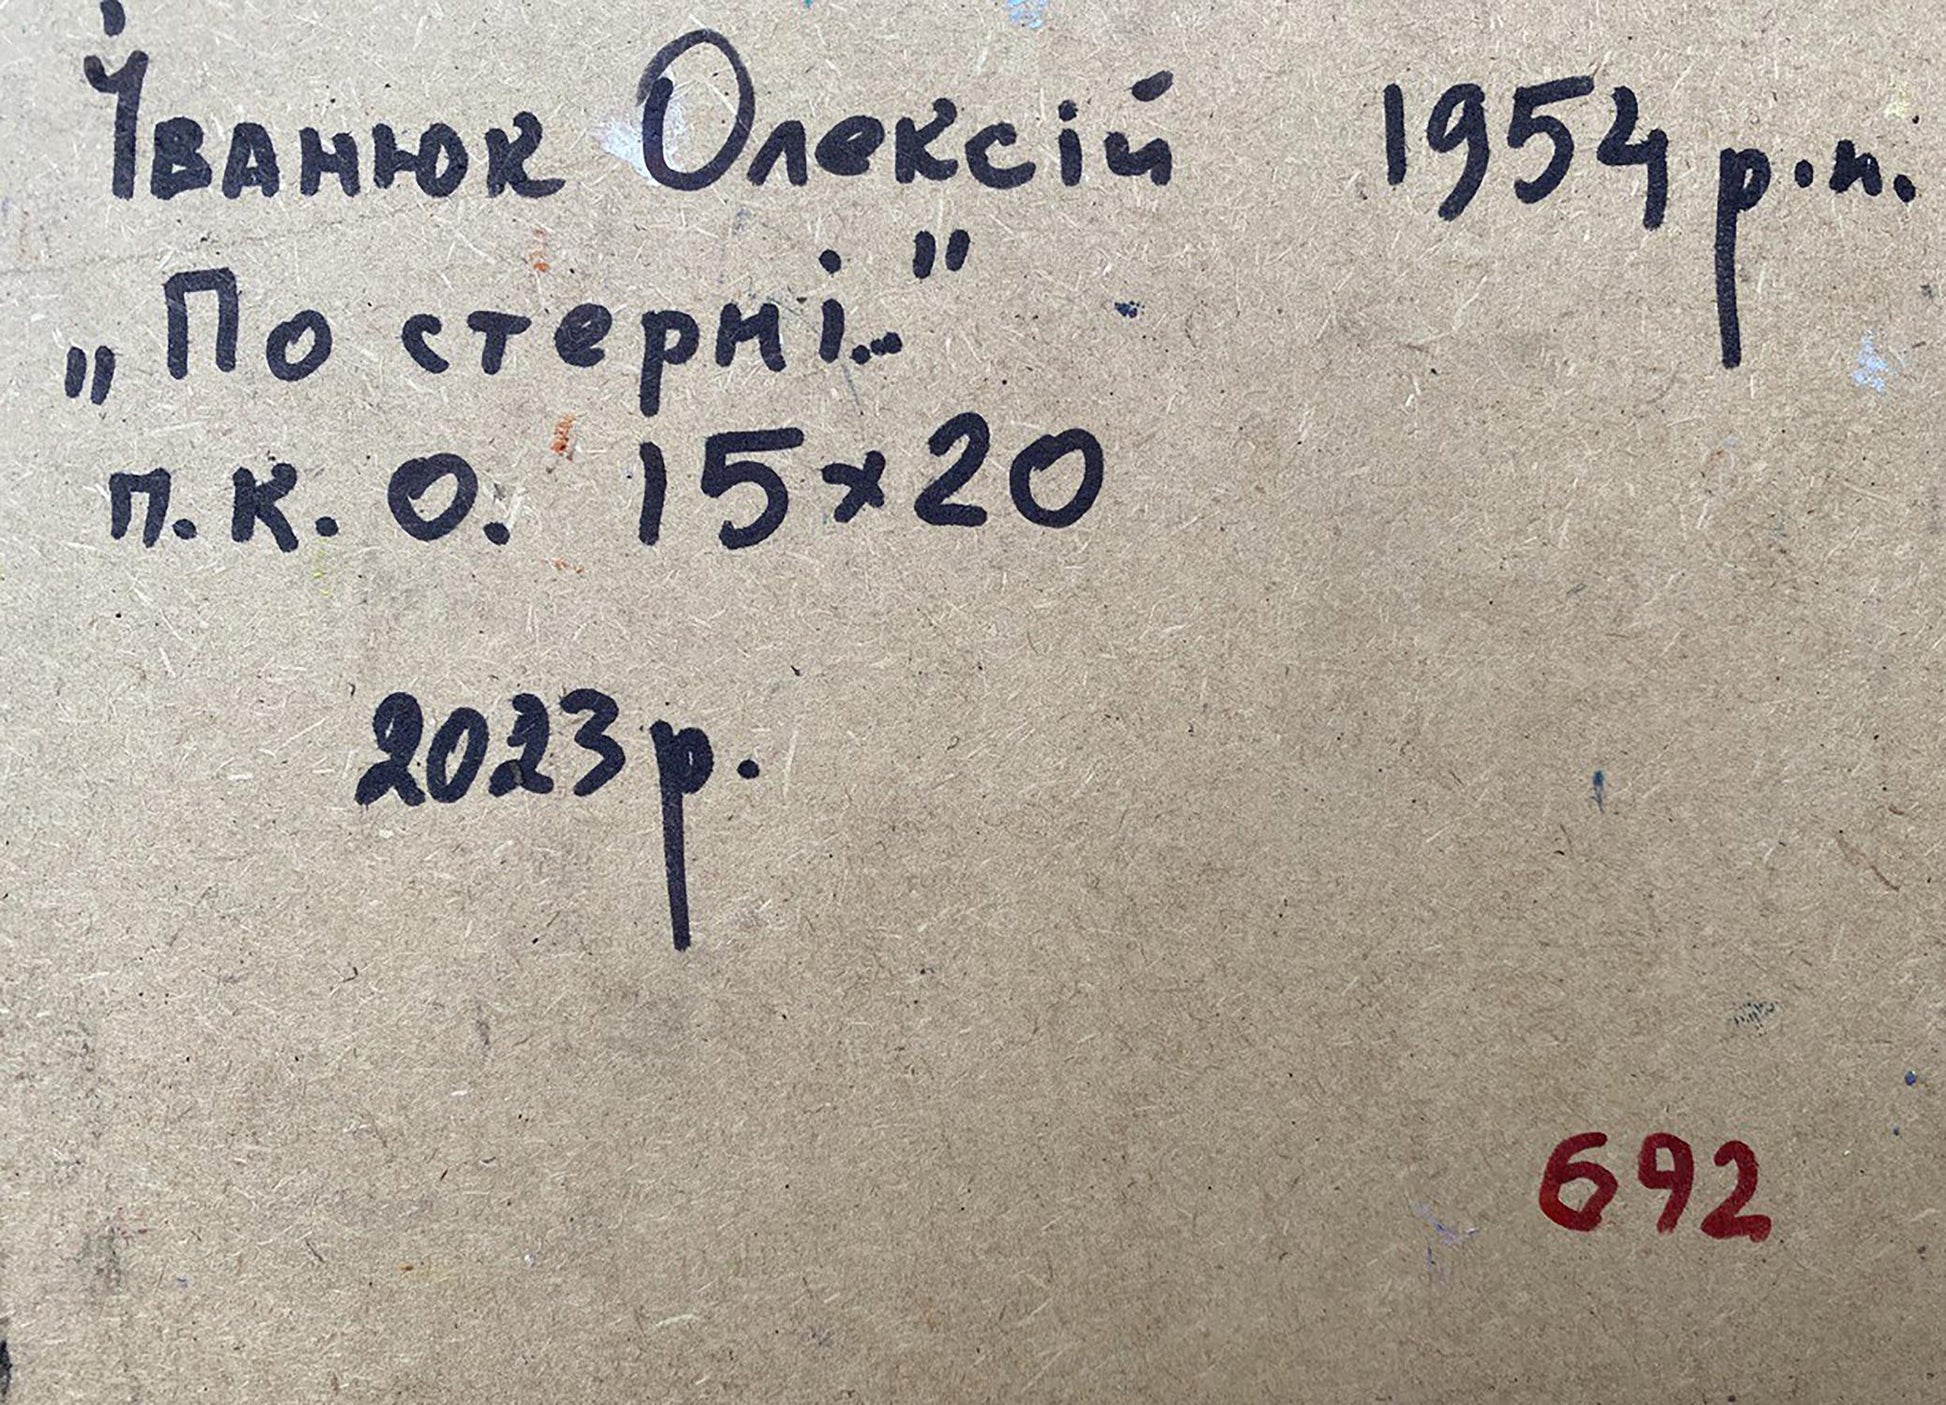 Іванюк Олексій 1954 р.н.
„По стерні..."
п.к. о. 15×20
2023 р.
692